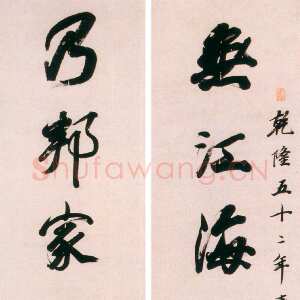 無江海
乾隆五十二年
乃邦家
Shufawang.CN